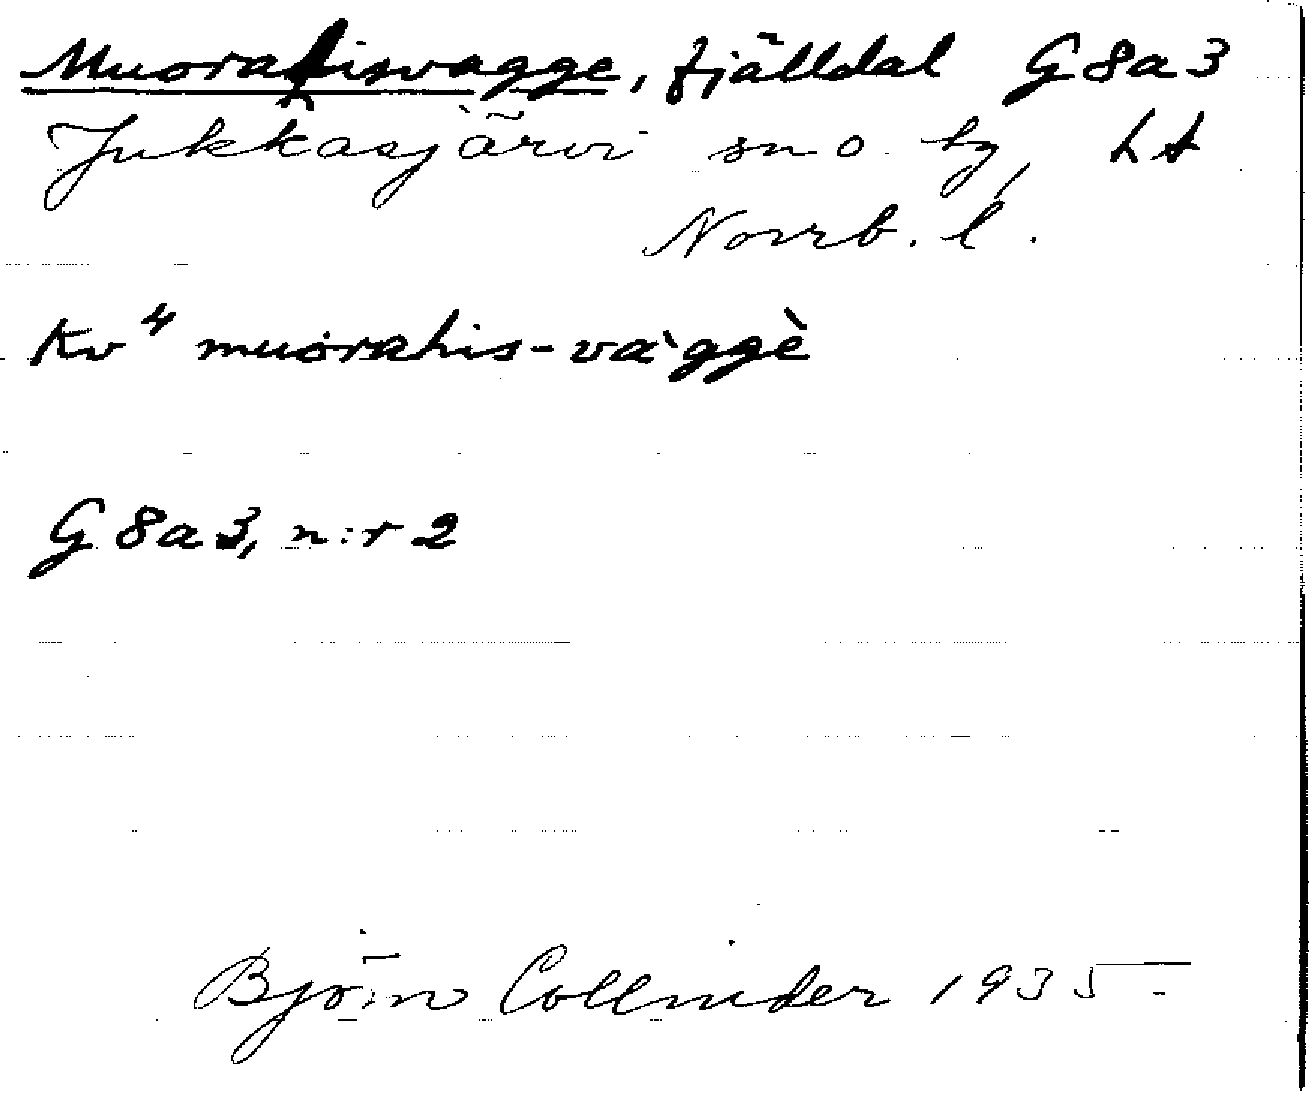 Muorahisvagge, fjälldal G8a3
Jukkasjärvi sn o. by, Lt
Norrb. l.
Kv 4 muorahis-va`ggè
G8a3, n:r 2
Björn Collinder 1935